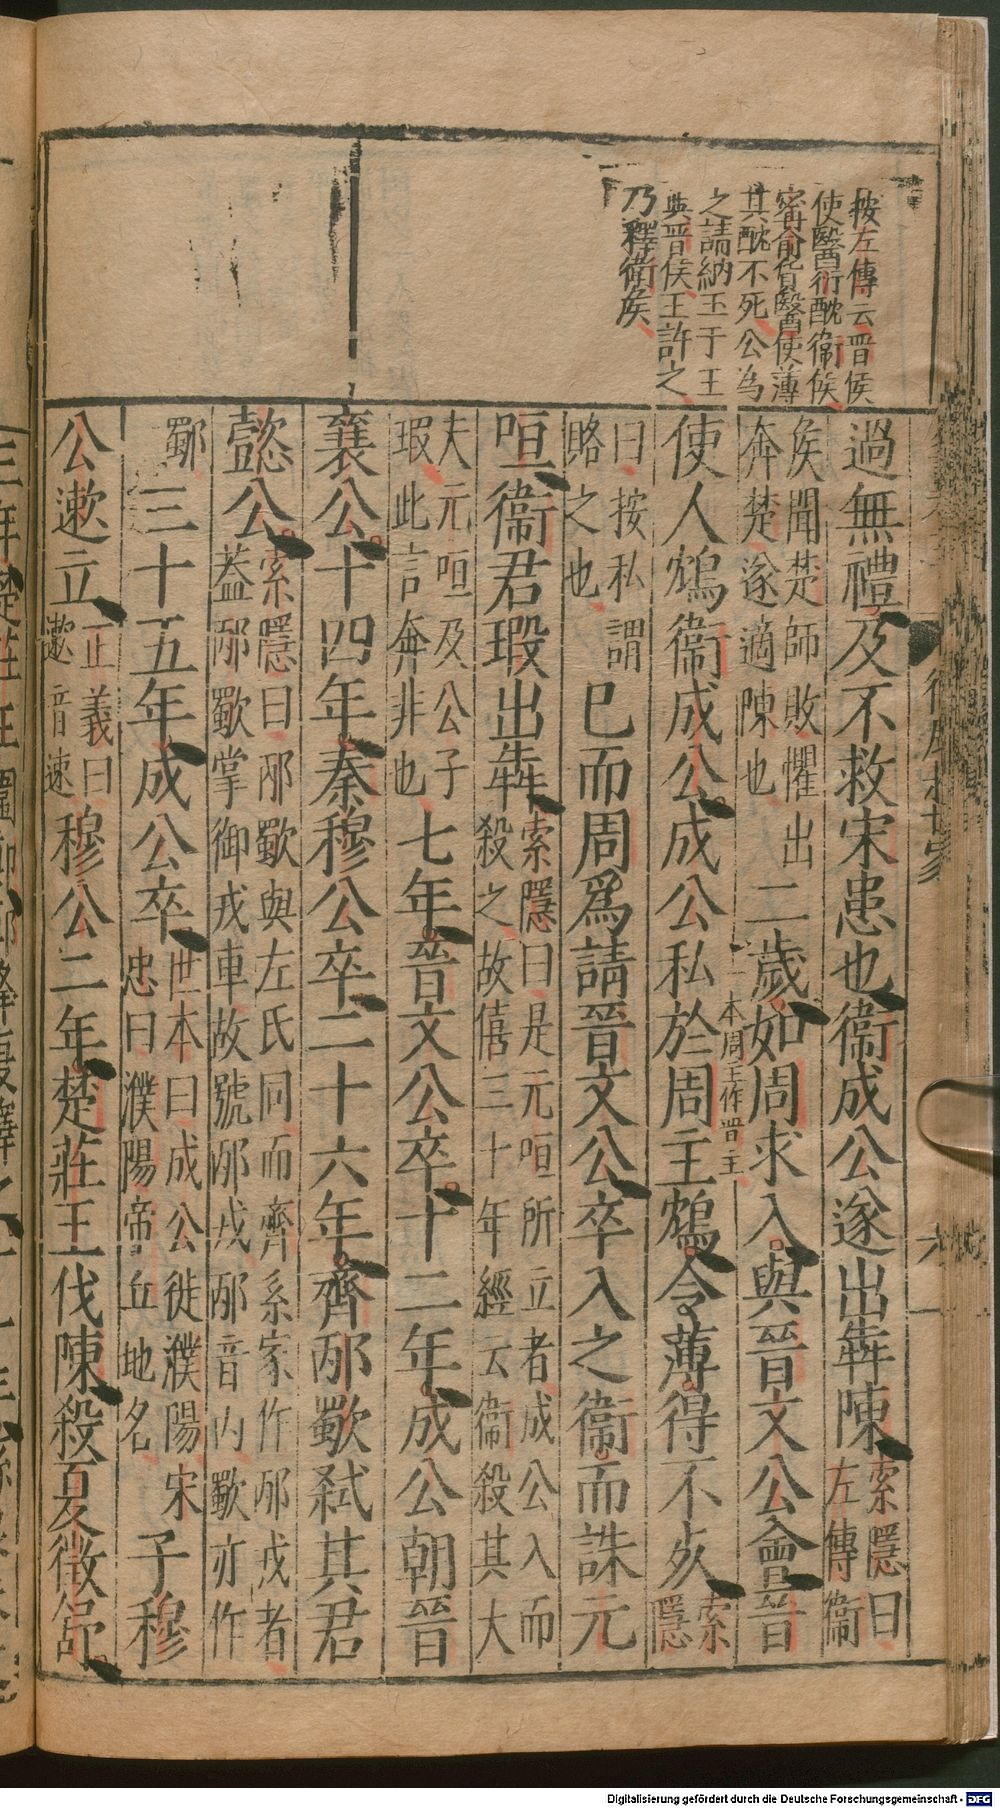 按左傳云晋侯
使醫衍酖衛侯
甯俞貨醫使薄
其酖不死公為
之請納玉于王
與晋侯王許之
乃釋衛侯
過無禮及不救宋患也衛成公遂出犇陳索隱曰左傳衛
侯聞楚師敗懼出奔楚遂適陳也二歲如周求入與晉文公會晉
一本周主作晋主
使人鴆衛成公成公私於周主鴆令薄得不死索隱
曰按私謂賂之也已而周爲請晉文公卒入之衛而誅元
咺衛君瑕出犇索隱曰是元咺所立者成公入而殺之故僖三十年經云衛殺其大
夫元咺及公子瑕此言奔非也七年晉文公卒十二年成公朝晉
襄公十四年秦穆公卒二十六年齊邴歜弑其君
懿公索隱曰邴歜與左氏同而齊系家作邴戎者蓋邴歜掌御戎車故號邴戎邴音丙歜亦作
䣝三十五年成公卒世本曰成公徙濮陽宋忠曰濮陽帝丘地名子穆
公遬立正義曰遬音速穆公二年楚莊王伐陳殺夏徵舒
六
Digitalisierung gefördert durch die Deutsche Forschungsgemeinschaft - DFG